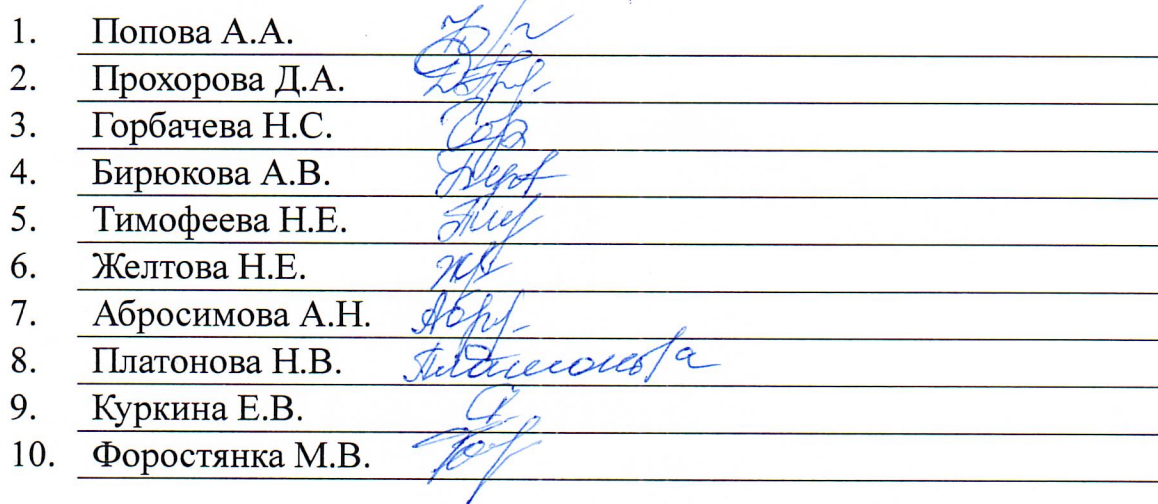 1. Попова А.А.
2. Прохорова Д.А.
3. Горбачева Н.С.
4. Бирюкова А.В.
5. Тимофеева Н.Е.
6. Желтова Н.Е.
7. Абросимова А.Н.
8. Платонова Н.В. Платонова
9. Куркина Е.В.
10. Форостянка М.В.